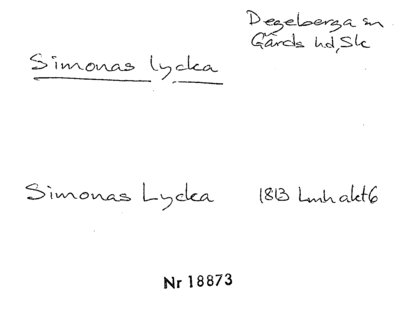 Degeberga sn
Gärds hd, Sk
Simonas lycka
Simonas Lycka 1813 Lmh akt 6
Nr 18873